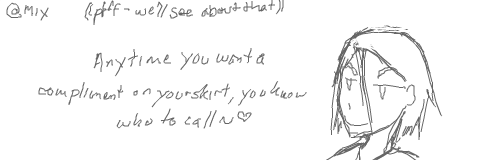 @Mix (pfff - we'll see about that)
Anytime you want a
compliment on your skirt, you know
who to call ~♡